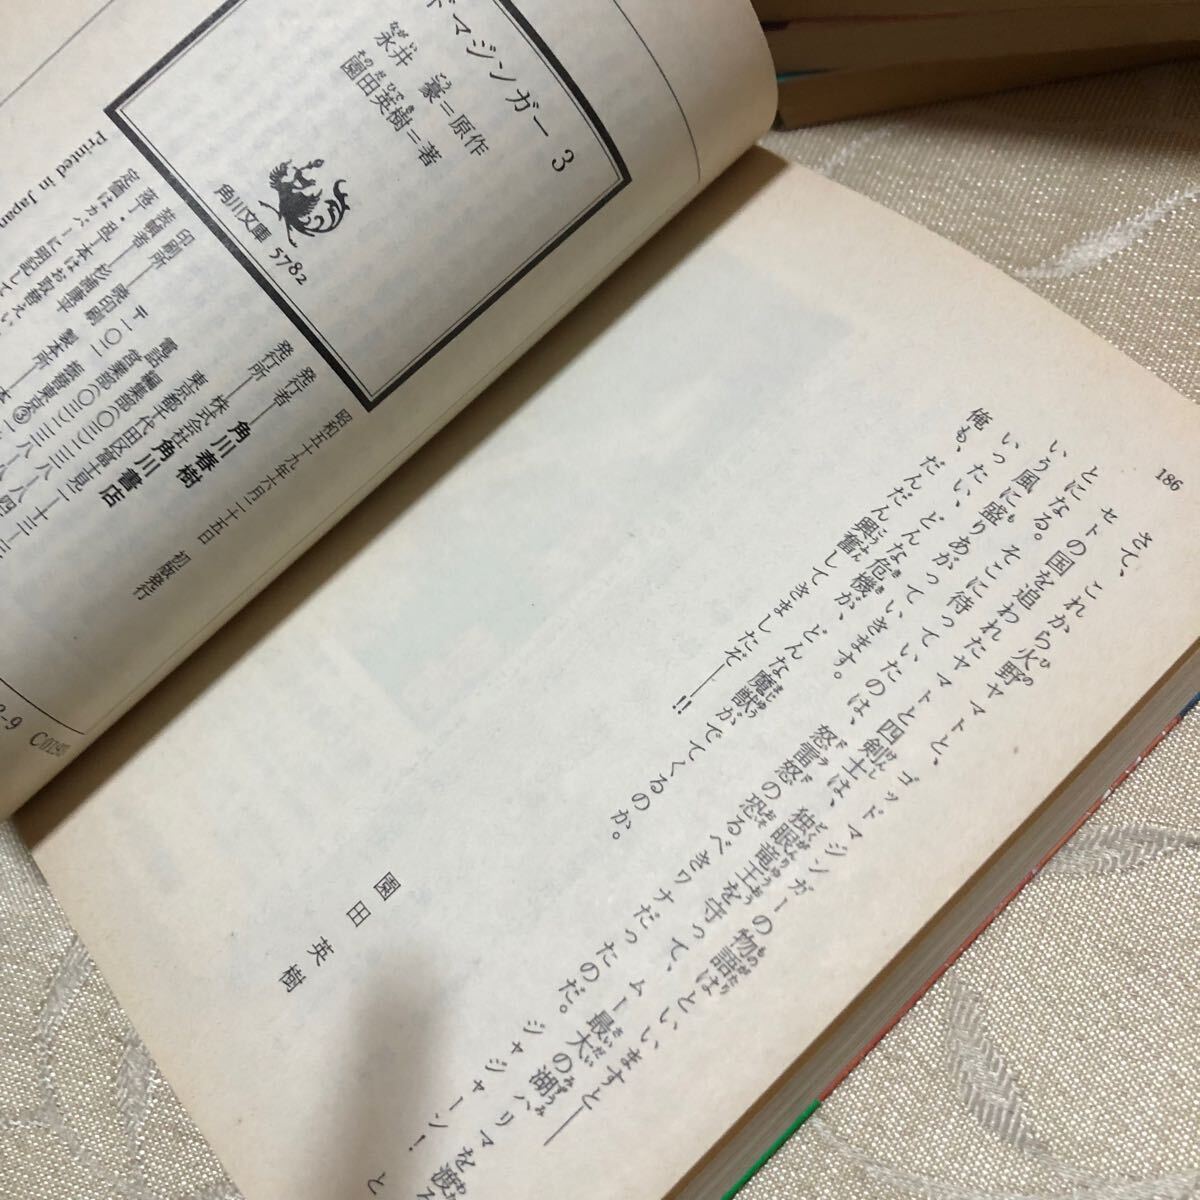 186
さて、これから火野ヤマトと、ゴッドマジンガーの物語はといいますと——
セトの国を追われたヤマトと四剣士は、独眼竜王を守って、ムー最大の湖ハリマを渡る
とになる。そこに待っていたのは、怒雷怒の恐るべきワナだったのだ。ジャジャーン！ と
いう風に盛りあがっていきます。
いったい、どんな危機が、どんな魔獣がでてくるのか。
俺も、だんだん興奮してきましたぞ——!!
園田英樹
ドマジンガー 3
永井 豪＝原作
園田英樹＝著
角川文庫 5782
昭和五十九年六月二十五日 初版発行
発行者——角川春樹
発行所——株式会社 角川書店
東京都千代田区富士見二ー十三ー三
電話 編集部(〇三)
営業部(〇三)
〒一〇二 振替東京③
印刷所——暁印刷 製本所
装幀者——杉浦康平
落丁・乱丁本はお取替えい
定価はカバーに明記して
Printed in Japan